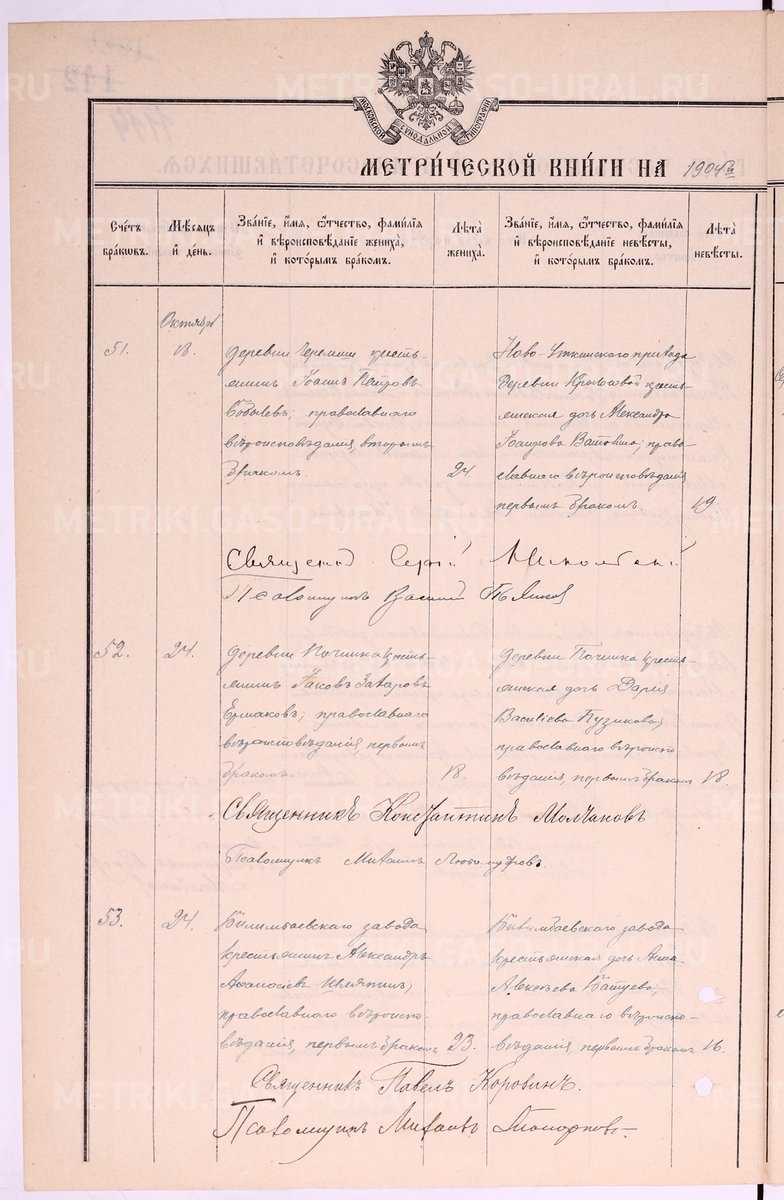 МОСКОВСКОЙ СѴНОДАЛЬНОЙ ТИПОГРАФІИ
МЕТРИ́ЧЕСКОЙ КНИ́ГИ НА 1904й
Сче́тъ бра́кѡвъ.
Мѣ́сѧцъ и҆ де́нь.
Зва́нїе, и҆́мѧ, ѻ҆́тчество, фами́лїѧ
и҆ вѣроисповѣ́данїе жениха̀,
и҆ кото́рымъ бра́комъ.
Лѣ́та жениха̀.
Зва́нїе, и҆́мѧ, ѻ҆́тчество, фами́лїѧ
и҆ вѣроисповѣ́данїе невѣ́сты,
и҆ кото́рымъ бра́комъ.
Лѣ́та невѣ́сты.
Октябрь
51.
18.
деревни Черемши кресть-
янинъ Іоаннъ Петровъ
православнаго
вѣроисповѣданія, вторымъ
бракомъ.
24
Ново-Уткинскаго прихода
деревни Крыласовой кресть-
янская дочь Александра
право-
славнаго вѣроисповѣданія
первымъ бракомъ.
19.
Священник Сергій
Псаломщикъ Василій
52.
24.
деревни Починка кресть-
янинъ Іаковъ Захаровъ
Ермаковъ; православнаго
вѣроисповѣданія, первымъ
бракомъ.
18.
деревни Починка кресть-
янская дочь Дарія
Васильева Пузикова,
православнаго вѣроиспо-
вѣданія, первымъ бракомъ
18.
Священникъ Константинъ Молчановъ
Псаломщикъ Михаилъ Любомудровъ.
53.
24.
Билимбаевскаго завода
крестьянинъ Александръ
Аѳанасіевъ
православнаго вѣроиспо-
вѣданія, первымъ бракомъ
23.
Билимбаевскаго завода
крестьянская дочь Анна
Алексѣева
православнаго вѣроиспо-
вѣданія, первымъ бракомъ
16.
Священникъ Павелъ Коровинъ.
Псаломщикъ Михаилъ
METRIKI.GASO-URAL.RU